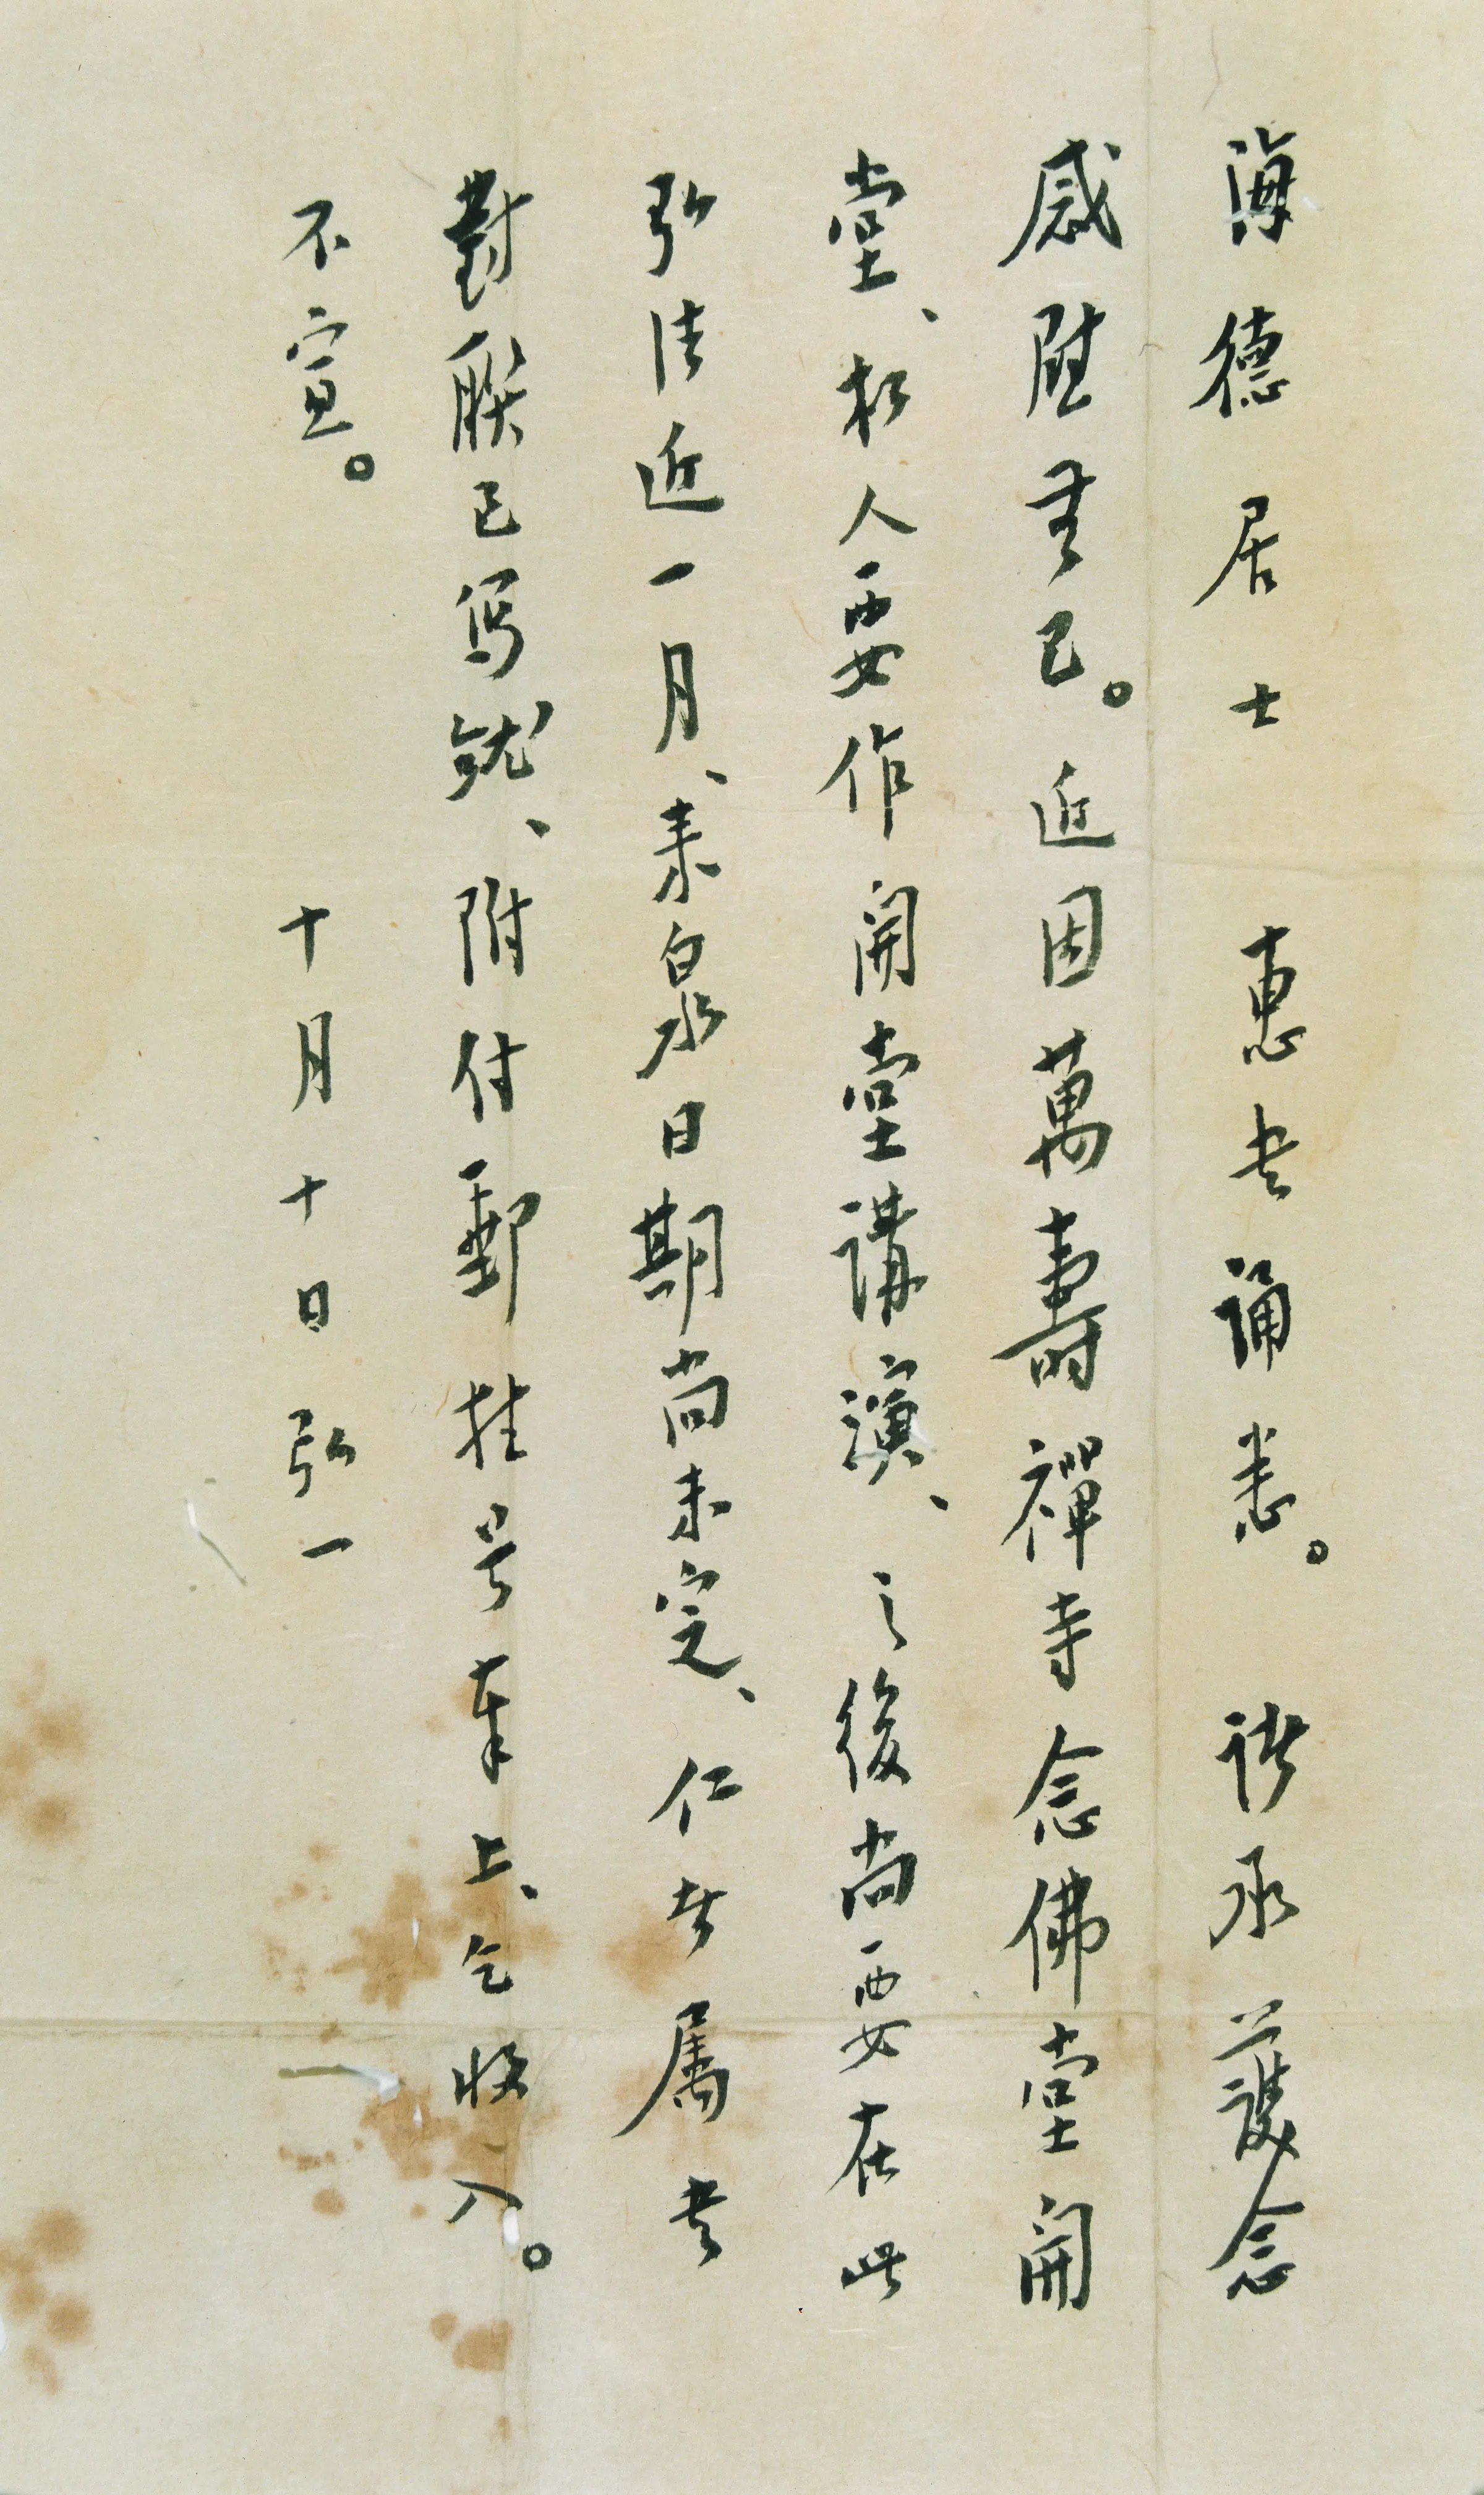 海德居士惠书誦悉。諸承護念
感慰無已。近因萬壽禪寺念佛堂開
堂、於人要作開堂講演、之後尚要在此
弘法近一月、来泉日期尚未定、仁者属书
對聯已写就、附付郵挂号奉上、乞收入。
不宣。
十月十日弘一